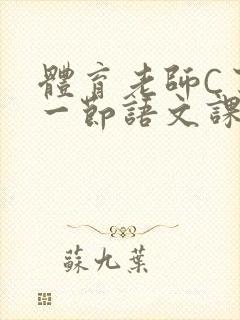 體育老師C
一節語文課
蘇九葉